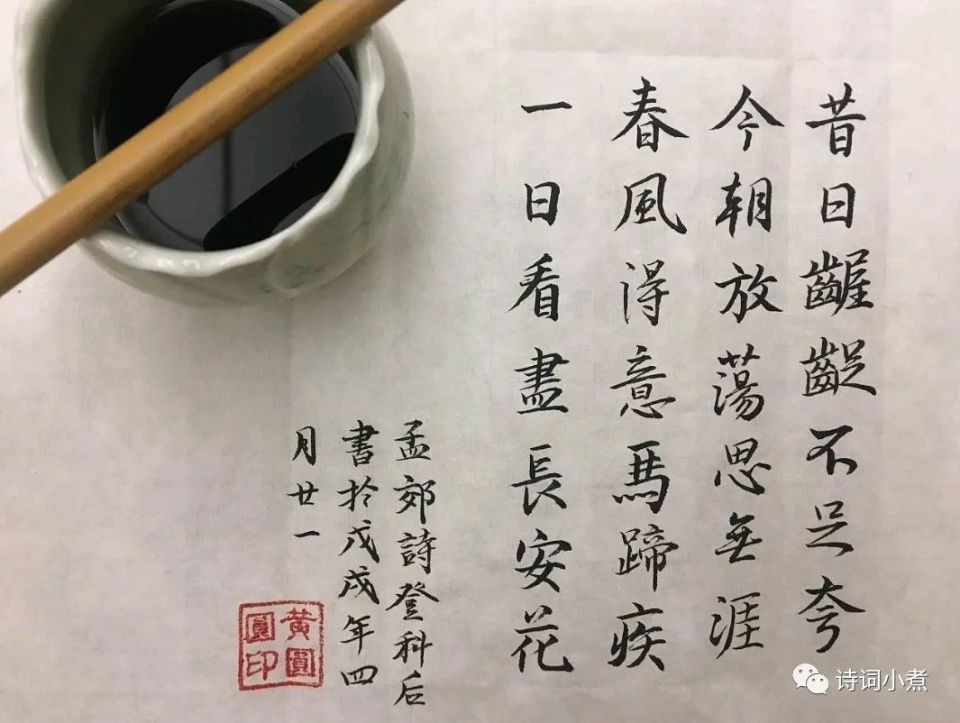 昔日齷齪不足夸
今朝放蕩思無涯
春風得意馬蹄疾
一日看盡長安花
孟郊詩登科后
書於戊戌年四
月廿一
黃圓圓印
诗词小煮